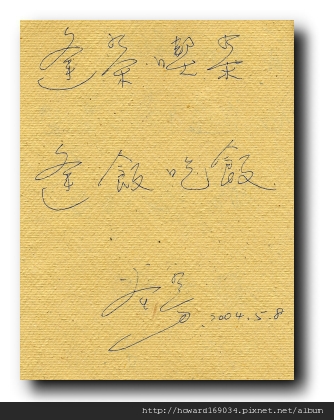 逢茶喫茶
逢飯吃飯
2004.5.8
http://howard169034.pixnet.net/album